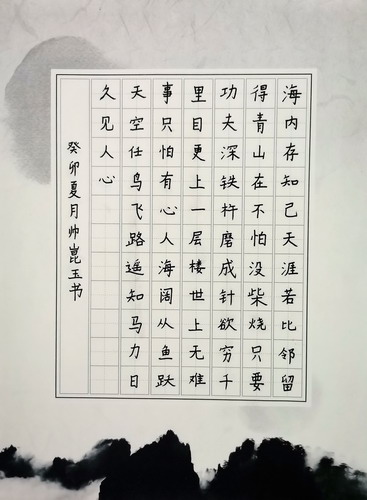 海内存知己天涯若比邻留
得青山在不怕没柴烧只要
功夫深铁杵磨成针欲穷千
里目更上一层楼世上无难
事只怕有心人海阔从鱼跃
天空任鸟飞路遥知马力日
久见人心
癸卯夏月帅崑玉书